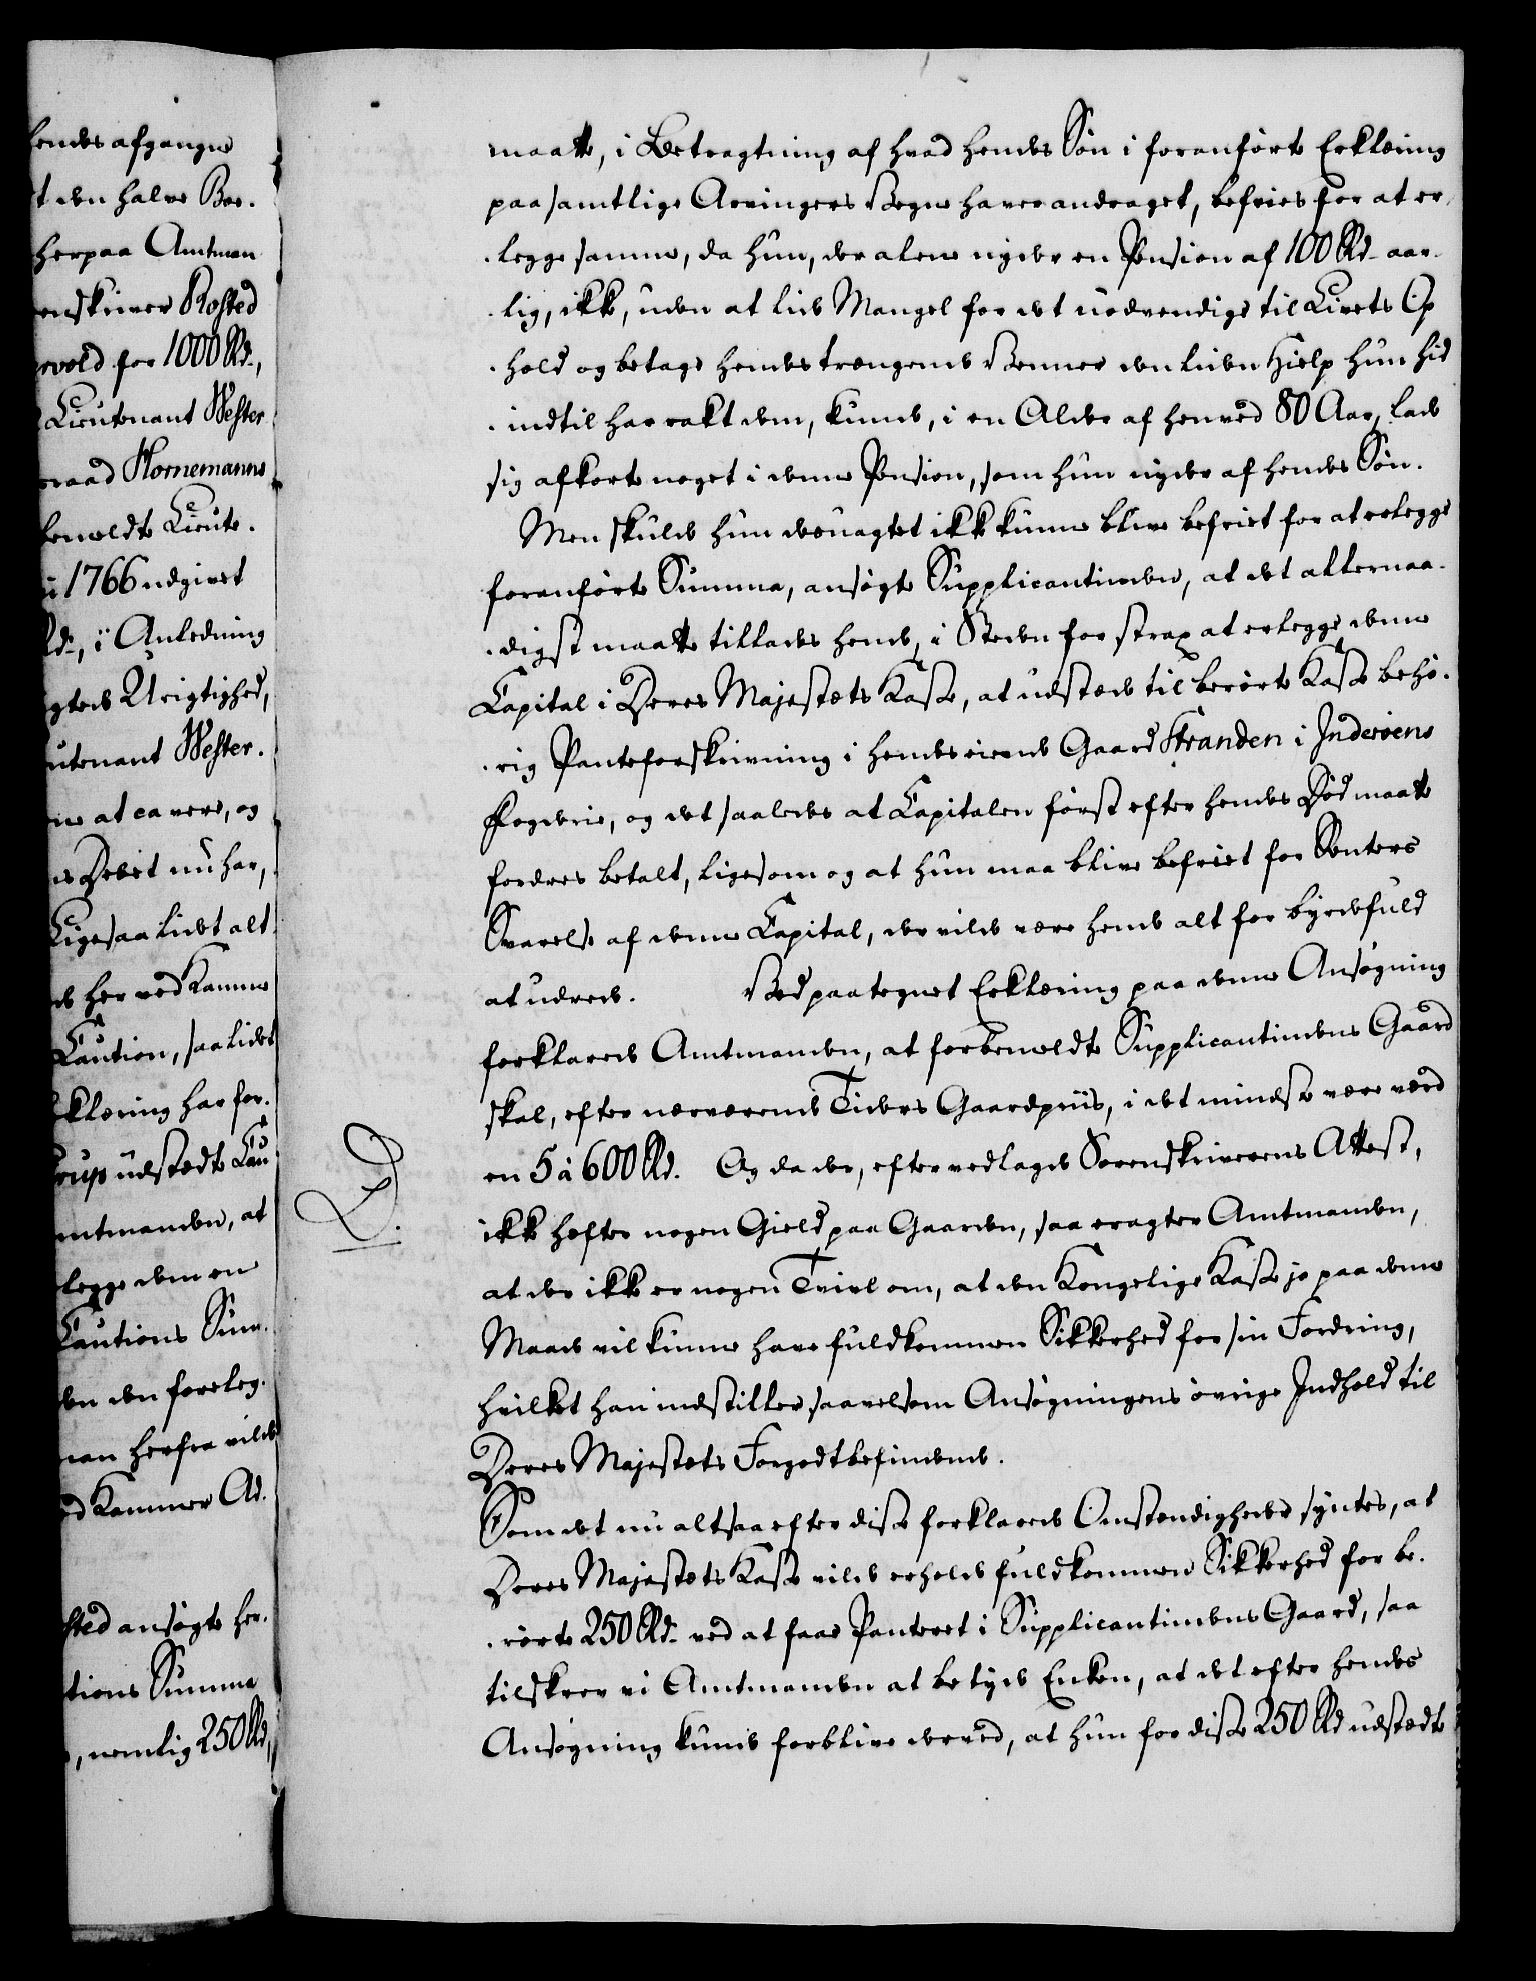 hendes afgangne
t den halve Boe.
herpaa Amtman
enskriver Rosted
rvold for 1000 Rd.,
Lieutenant Wester
raad Hornemanns
beneldte Lieute.
i 1766 udgivet
Rd., i Anledning
gtede Urigtighed,
utenant Wester.
ne at cavere, og
is Debet nu har,
Ligesaa lidet alt
de her ved Kamme
Caution, saa lidet
klæring har for.
rup udstædte Cau
mtmanden, at
legge dem en
Cautions Sum.
den den foreleg.
man herfra vilde
ed Kammer Ad.
sted ansøgte her.
tions Summa
, nemlig 250 Rd,
maatte, i Betragtning af hvad hendes Søn i foranførte Erklæring
paa samtlige Arvingers Vegne haver andraget, befries for at er,
legge samme, da hun, der alene nyder en Pension af 100 Rd. aar-
lig, ikke, uden at lide Mangel for det nødvendige til Livets Op
hold og betage hendes trængende Venner den liden Hielp hun hid
indtil har rakt dem, kunde, i en Alder af henved 80 Aar, lade
sig afkorte noget i denne Pension, som hun nyder af hendes Søn.
Men skulde hun desuagtet ikke kunne blive befriet for at erlegge
foranførte Summa, ansøgte Supplicantinden, at det allernaa-
digst maatte tillades hende, i Steden for strax at erlegge denne
Capital i Deres Majestæts Kasse, at udstæde til berørte Kasse behø-
rig Panteforskrivning i hendes eiende Gaard Stranden i Inderøens
Fogderie, og det saaledes at Capitalen først efter hendes Død maatte
fordres betalt, ligesom og at hun maa blive befriet for Renters
Svarelse af denne Capital, der vilde være hende alt for byrdefuld
at udrede. Ved paategnet Erklæring paa denne Ansøgning
forklarede Amtmanden, at forbeneldte Supplicantindens Gaard
skal, efter nærværende Tiders Gaardpriis, i det mindste være værd
D.
en 5 à 600 Rd. Og da der, efter vedlagde Sorenskriverens Attest,
ikke hefter nogen Gield paa Gaarden, saa eragter Amtmanden,
at der ikke er nogen Tvivl om, at den Kongelige Kasse jo paa denne
Maade vil kunne have fuldkommen Sikkerhed for sin Fordring,
hvilket han indstiller saavelsom Ansøgningens øvrige Indhold til
Deres Majestæts Forgodtbefindende.
Som det nu altsaa efter disse forklarede Omstændigheder syntes, at
Deres Majestæts Kasse vilde erholde fuldkommen Sikkerhed for be-
rørte 250 Rd. ved at faae Panteret i Supplicantindens Gaard, saa
tilskrev vi Amtmanden at betyde Enken, at det efter hendes
Ansøgning kunde forblive derved, at hun for disse 250 Rd udstædte